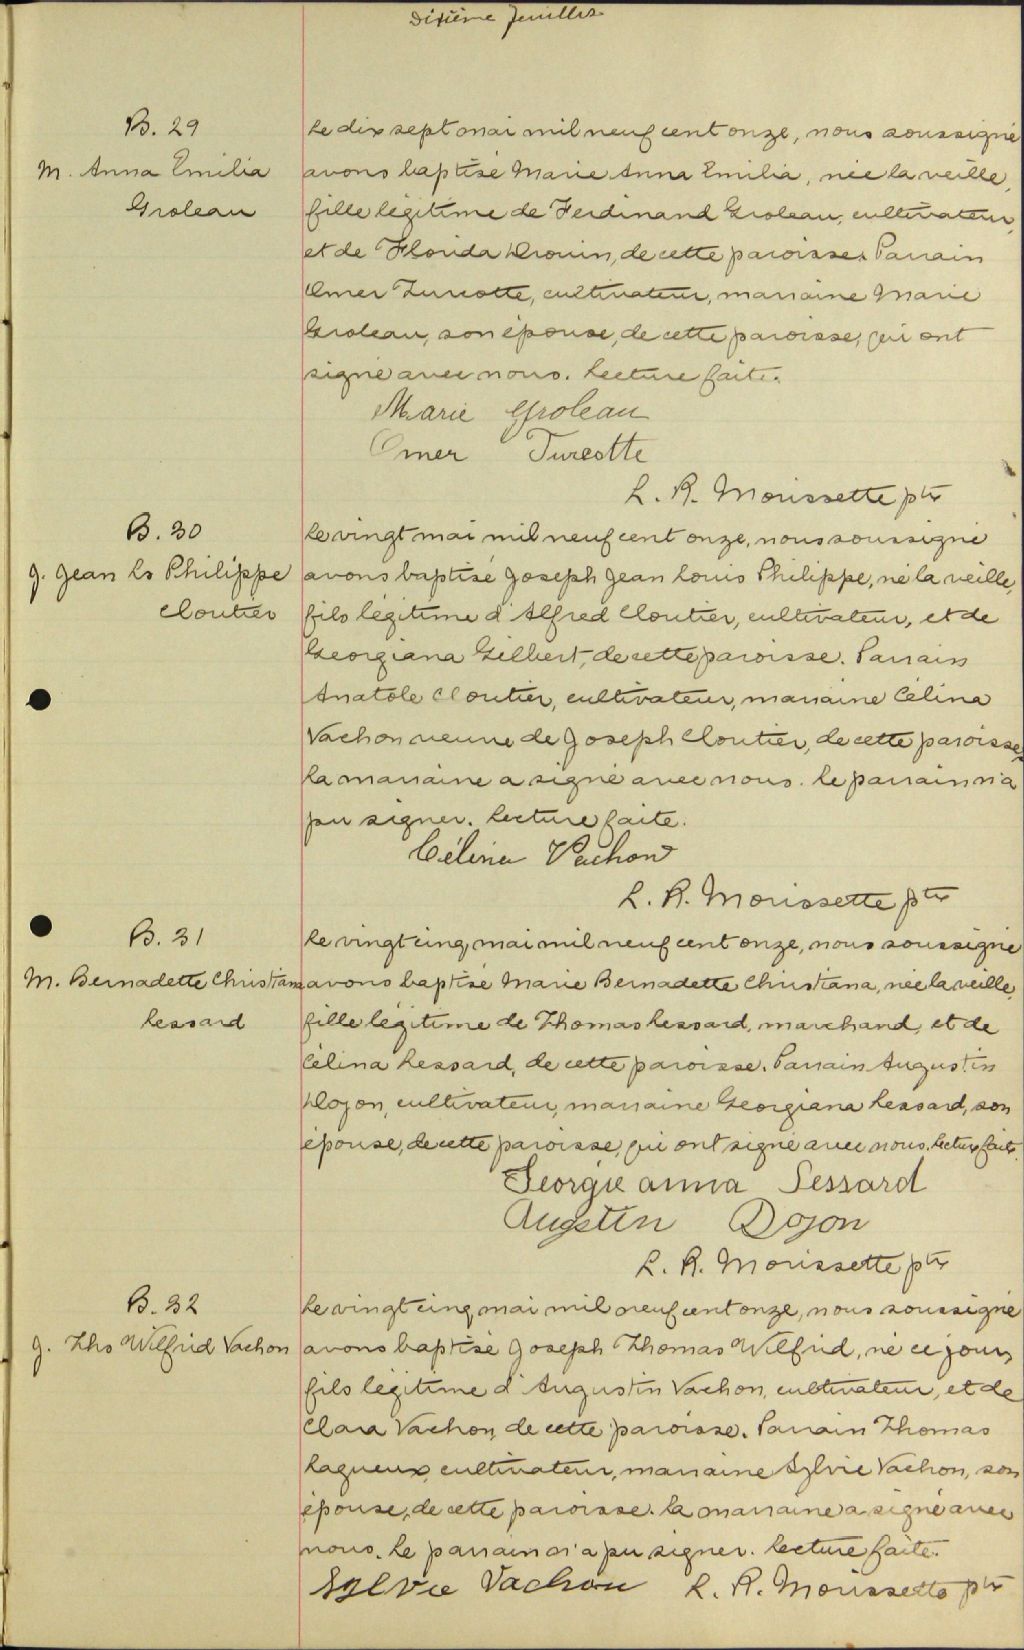 Dixième feuillet
B. 29
M. Anna Emilia
Groleau
Le dix sept mai mil neuf cent onze, nous soussigné
avons baptisé Marie Anna Emilia, née la veille,
fille légitime de Ferdinand Groleau, cultivateur,
et de Florida Drouin, de cette paroisse. Parrain
Omer Turcotte, cultivateur, marraine Marie
Groleau, son épouse, de cette paroisse, qui ont
signé avec nous. Lecture faite.
Marie Groleau
Omer Turcotte
L. R. Morissette ptre
B. 30
J. Jean Ls Philippe
Cloutier
Le vingt mai mil neuf cent onze, nous soussigné
avons baptisé Joseph Jean Louis Philippe, né la veille,
fils légitime d'Alfred Cloutier, cultivateur, et de
Georgiana Gilbert, de cette paroisse. Parrain
Anatole Cloutier, cultivateur, marraine Célina
Vachon veuve de Joseph Cloutier, de cette paroisse,
La marraine a signé avec nous. Le parrain n'a
pu signer. Lecture faite.
Célina Vachon
L. R. Morissette ptre
B. 31
M. Bernadette Christiana
Lessard
Le vingt cinq mai mil neuf cent onze, nous soussigné
avons baptisé Marie Bernadette Christiana, née la veille,
fille légitime de Thomas Lessard, marchand, et de
Célina Lessard, de cette paroisse. Parrain Augustin
Doyon, cultivateur, marraine Georgiana Lessard, son
épouse, de cette paroisse, qui ont signé avec nous. Lecture faite.
Georgie anna Lessard
Augstin Doyon
L. R. Morissette ptre
B. 32
J. Ths Wilfrid Vachon
Le vingt cinq mai mil neuf cent onze, nous soussigné
avons baptisé Joseph Thomas Wilfrid, né ce jour,
fils légitime d'Augustin Vachon, cultivateur, et de
Clara Vachon, de cette paroisse. Parrain Thomas
Lagueux, cultivateur, marraine Sylvie Vachon, son
épouse, de cette paroisse. La marraine a signé avec
nous. Le parrain n'a pu signer. Lecture faite.
Sylvie Vachon L. R. Morissette ptre